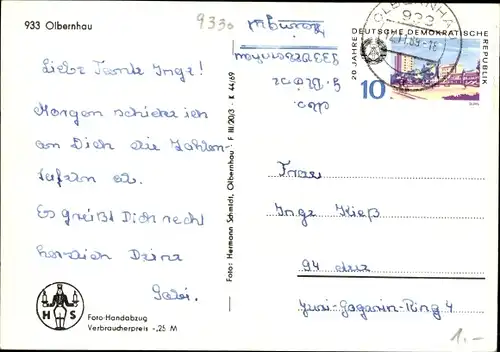 933 Olbernhau
Liebe Tante Inge!
Morgen schicke ich
an Dich die Zahlen-
tafeln ab.
Es grüßt Dich recht
herzlich Deine
Gabi.
H S
Foto-Handabzug
Verbraucherpreis -,25 M
Foto: Hermann Schmidt, Olbernhau F III/20/3 · K 44/69
9330
Abs.
G.
933 Olbernhau
OLBERNHAU
933
20 JAHRE DEUTSCHE DEMOKRATISCHE REPUBLIK
10
Frau
Inge Kieß
94 Aue
Juri-Gagarin-Ring 4
1.-